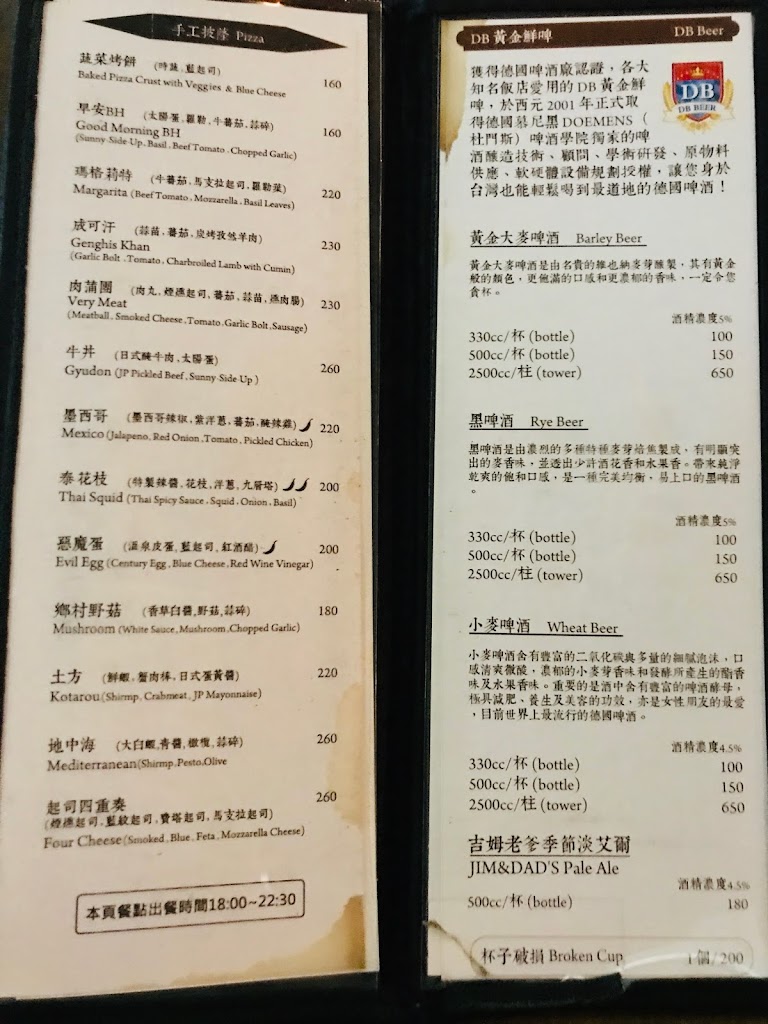 手工披薩 Pizza
蔬菜烤餅 (時蔬,藍起司)
Baked Pizza Crust with Veggies & Blue Cheese 160
早安BH (太陽蛋,羅勒,牛蕃茄,蒜碎)
Good Morning BH 160
(Sunny-Side Up. Basil. Beef Tomato. Chopped Garlic)
瑪格莉特 (牛蕃茄,馬支拉起司,羅勒葉)
Margarita (Beef Tomato. Mozzarella. Basil Leaves) 220
成可汗 (蒜苗,蕃茄,炭烤孜然羊肉)
Genghis Khan 230
(Garlic Bolt. Tomato. Charbroiled Lamb with Cumin)
肉蒲團 (肉丸,煙燻起司,蕃茄,蒜苗,燻肉腸)
Very Meat 230
(Meatball. Smoked Cheese.Tomato.Garlic Bolt.Sausage)
牛丼 (日式醃牛肉,太陽蛋)
Gyudon (JP Pickled Beef. Sunny-Side-Up) 260
墨西哥 (墨西哥辣椒,紫洋蔥,蕃茄,醃辣雞)
Mexico (Jalapeno. Red Onion.Tomato. Pickled Chicken) 220
泰花枝 (特製辣醬,花枝,洋蔥,九層塔)
Thai Squid (Thai Spicy Sauce. Squid. Onion. Basil) 200
惡魔蛋 (溫泉皮蛋,藍起司,紅酒醋)
Evil Egg (Century Egg. Blue Cheese. Red Wine Vinegar) 200
鄉村野菇 (香草白醬,野菇,蒜碎)
Mushroom (White Sauce. Mushroom.Chopped Garlic) 180
土方 (鮮蝦,蟹肉棒,日式蛋黃醬)
Kotarou(Shirmp. Crabmeat. JP Mayonnaise) 220
地中海 (大白蝦,青醬,橄欖,蒜碎)
Mediterranean(Shirmp.Pesto.Olive 260
起司四重奏 260
(煙燻起司,藍紋起司,費塔起司,馬支拉起司)
Four Cheese(Smoked. Blue. Feta. Mozzarella Cheese)
本頁餐點出餐時間18:00~22:30
DB 黃金鮮啤 DB Beer
獲得德國啤酒廠認證，各大
知名飯店愛用的 DB 黃金鮮
啤，於西元 2001 年正式取
得德國慕尼黑 DOEMENS（
杜門斯）啤酒學院獨家的啤
酒釀造技術、顧問、學術研發、原物料
供應、軟硬體設備規劃授權，讓您身於
台灣也能輕鬆喝到最道地的德國啤酒！
DB
DB BEER
黃金大麥啤酒 Barley Beer
黃金大麥啤酒是由名貴的維也納麥芽釀製，其有黃金
般的顏色，更飽滿的口感和更濃郁的香味，一定令您
貪杯。
酒精濃度5%
330cc/杯 (bottle) 100
500cc/杯 (bottle) 150
2500cc/柱 (tower) 650
黑啤酒 Rye Beer
黑啤酒是由濃烈的多種特種麥芽焙焦製成，有明顯突
出的麥香味，並透出少許酒花香和水果香。帶來純淨
乾爽的飽和口感，是一種完美均衡，易上口的黑啤酒
。
酒精濃度5%
330cc/杯 (bottle) 100
500cc/杯 (bottle) 150
2500cc/柱 (tower) 650
小麥啤酒 Wheat Beer
小麥啤酒含有豐富的二氧化碳與多量的細膩泡沫，口
感清爽微酸，濃郁的小麥芽香味和發酵所產生的酯香
味及水果香味。重要的是酒中含有豐富的啤酒酵母，
極具減肥、養生及美容的功效，亦是女性朋友的最愛
，目前世界上最流行的德國啤酒。
酒精濃度4.5%
330cc/杯 (bottle) 100
500cc/杯 (bottle) 150
2500cc/柱 (tower) 650
吉姆老爹季節淡艾爾
JIM&DAD'S Pale Ale
酒精濃度4.5%
500cc/杯 (bottle) 180
杯子破損 Broken Cup 1個/200